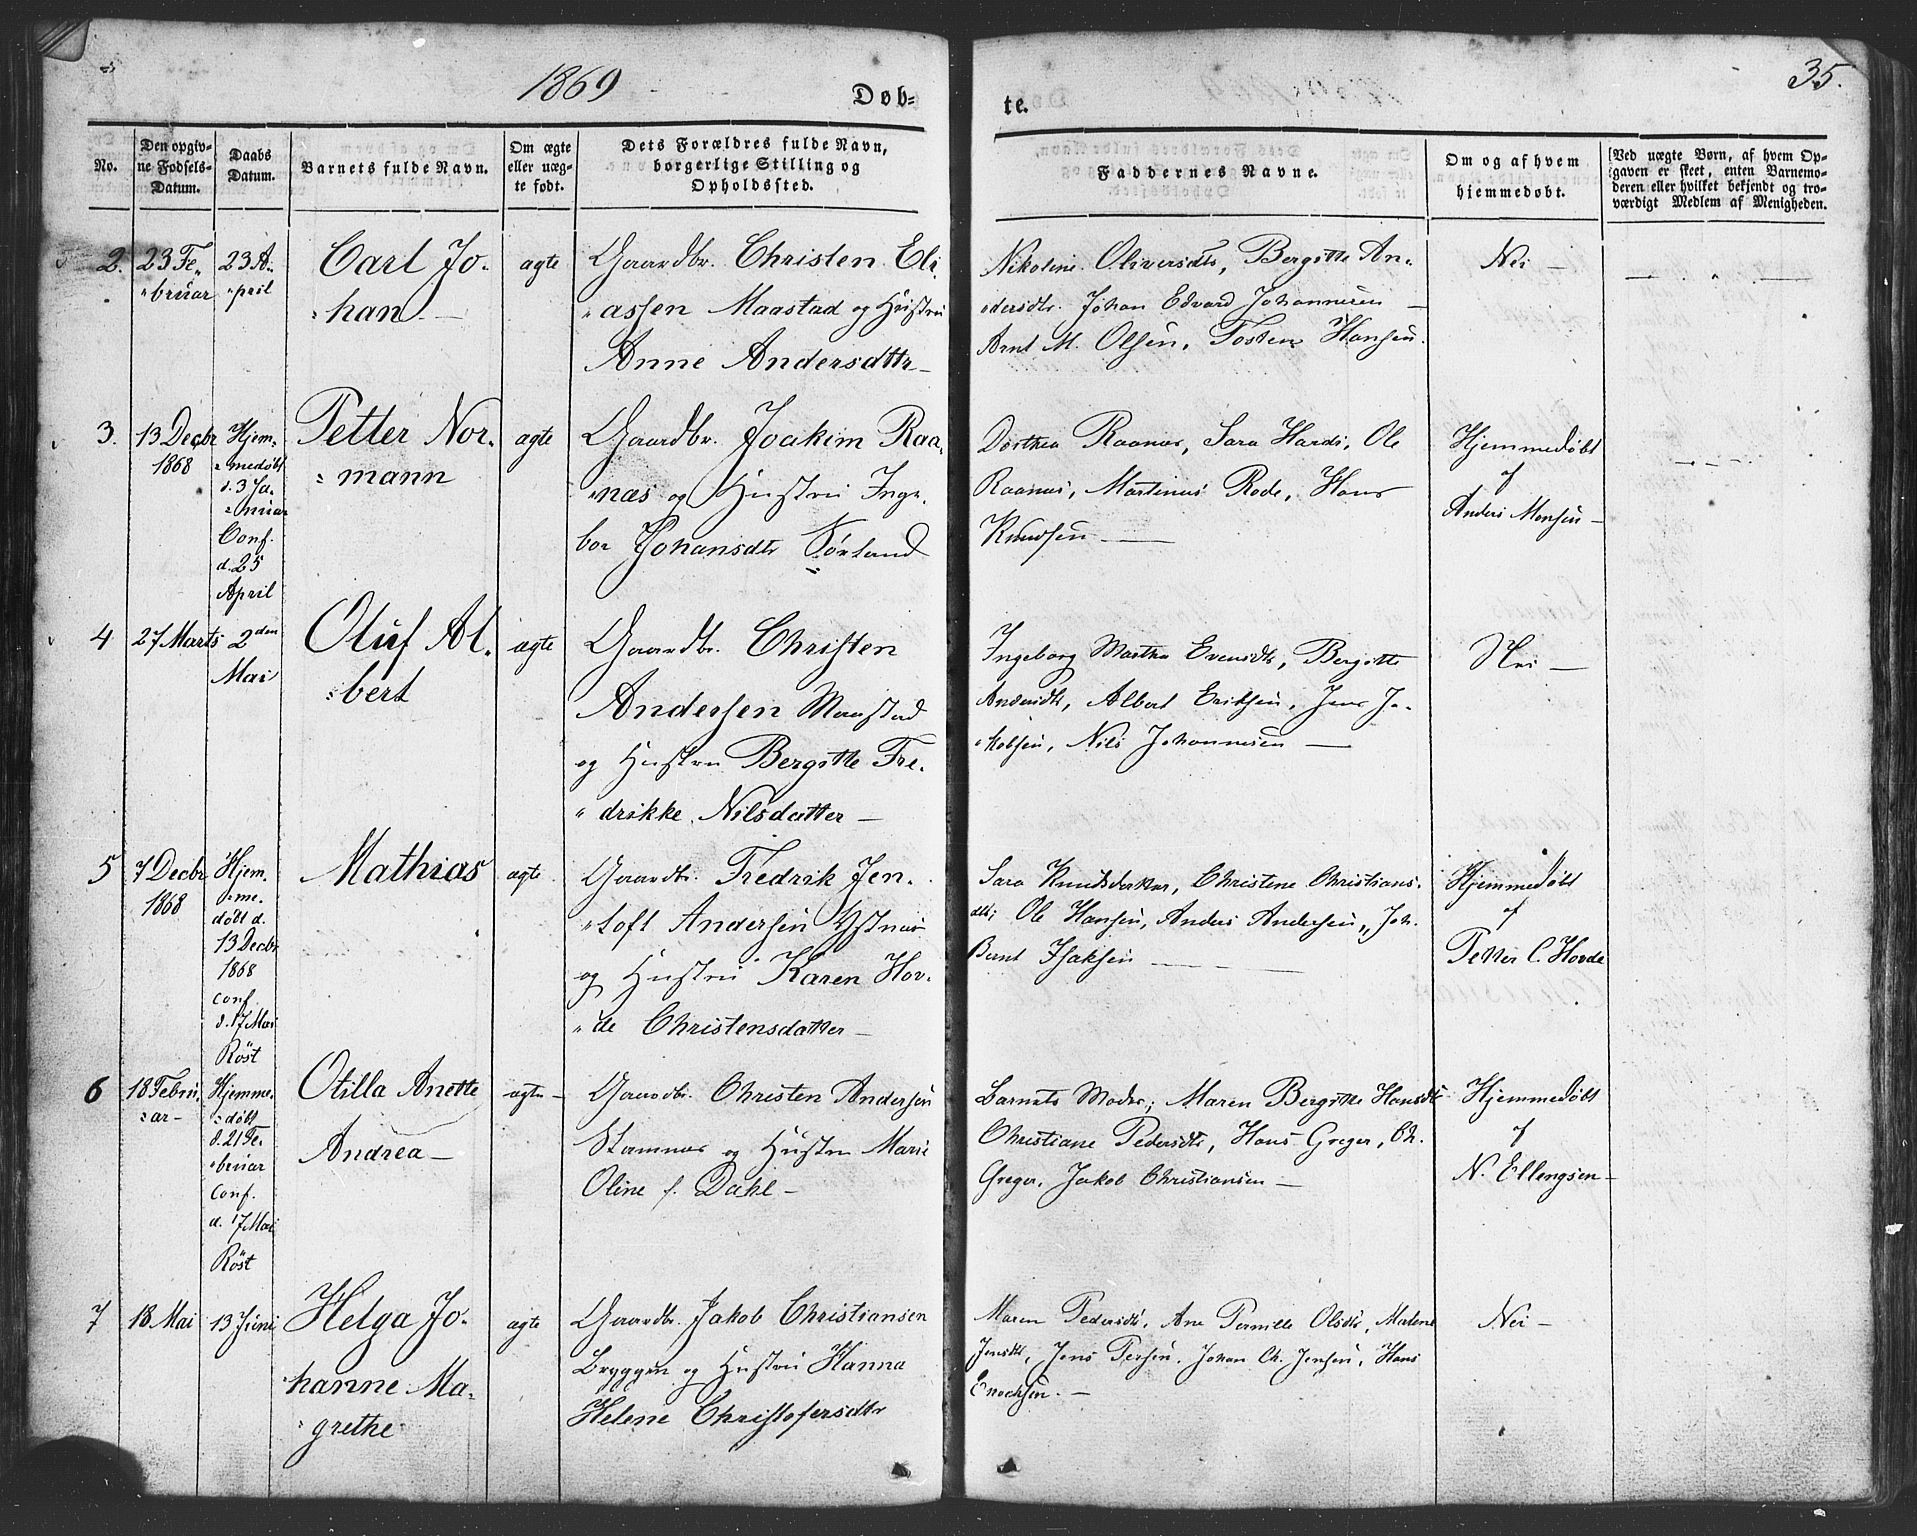 1869
Døb-
te.
35.
No.
Den opgiv-
ne Fødsels-
Datum.
Daabs
Datum.
Barnets fulde Navn.
Om ægte
eller uæg-
te født.
Dets Forældres fulde Navn,
borgerlige Stilling og
Opholdssted.
Faddernes Navne.
Om og af hvem
hjemmedøbt.
Ved uægte Børn, af hvem Op-
gaven er skeet, enten Barnemo-
deren eller hvilket bekjendt og tro-
værdigt Medlem af Menigheden.
2.
23 Fe-
bruar
23 A-
pril
Carl Jo-
han
ægte
Gaardbr. Christen Eli-
assen Maastad og Hustru
Anne Andersdttr
Nikoline Oliversdtr, Bergitte An-
dersdtr. Johan Edvard Johannesen
Arnt M. Olsen, Tosten Hansen.
Nei
3.
13 Decbr
1868
Hjem-
medøbt
d. 3 Ja-
nuar
Conf.
d. 25
April
Petter Nor-
mann
ægte
Gaardbr. Joakim Raa-
næs og Hustru Inge-
bor Johansdtr Sørland
Dorthea Raanæs, Sara Hardi, Ole
Raanæs, Martinus Rode, Hans
Knudsen
Hjemmedøbt
af
Anders Monsen
4
27 Marts
2den
Mai
Oluf Al-
bert
ægte
Gaardbr. Christen
Andersen Maastad
og Hustru Bergitte Fre-
drikke Nilsdatter
Ingeborg Martha Evensdtr, Bergitte
Andersdtr, Albert Eriksen, Jens Ja-
kobsen, Nils Johannesen
Nei
5
7 Decbr
1868
Hjem-
me-
døbt d.
13 Decbr
1868
conf.
d. 17 Mai
Röst
Mathias
ægte
Gaardbr. Fredrik Jen-
toft Andersen Ystnæs
og Hustru Karen Hov-
de Christensdatter
Sara Knudsdatter, Christene Christians-
dtr, Ole Hansen, Anders Andersen, Joh.
Bernt Isaksen
Hjemmedøbt
af
Petter C. Hovde
6
18 Febru-
ar
Hjemme-
døbt
d. 21 Fe-
bruar
Conf.
d. 17 Mai
Röst
Otilla Anette
Andrea
ægte
Gaardbr. Christen Andersen
Stamnæs og Hustru Marie
Oline f. Dahl
Barnets Moder, Maren Bergitte Hansdtr
Christiane Pedersdtr, Hans Greger, Ch.
Greger, Jakob Christiansen
Hjemmedøbt
af
N. Ellengsen
7
18 Mai
13 Juni
Helga Jo-
hanne Ma-
grethe
ægte
Gaardbr. Jakob Christiansen
Bryggen og Hustru Hanna
Helene Christofersdtr
Maren Pedersdtr, Ane Pernille Olsdtr, Malene
Jensdtr, Jens Persen, Johan Ch. Jensen, Hans
Enochsen.
Nei